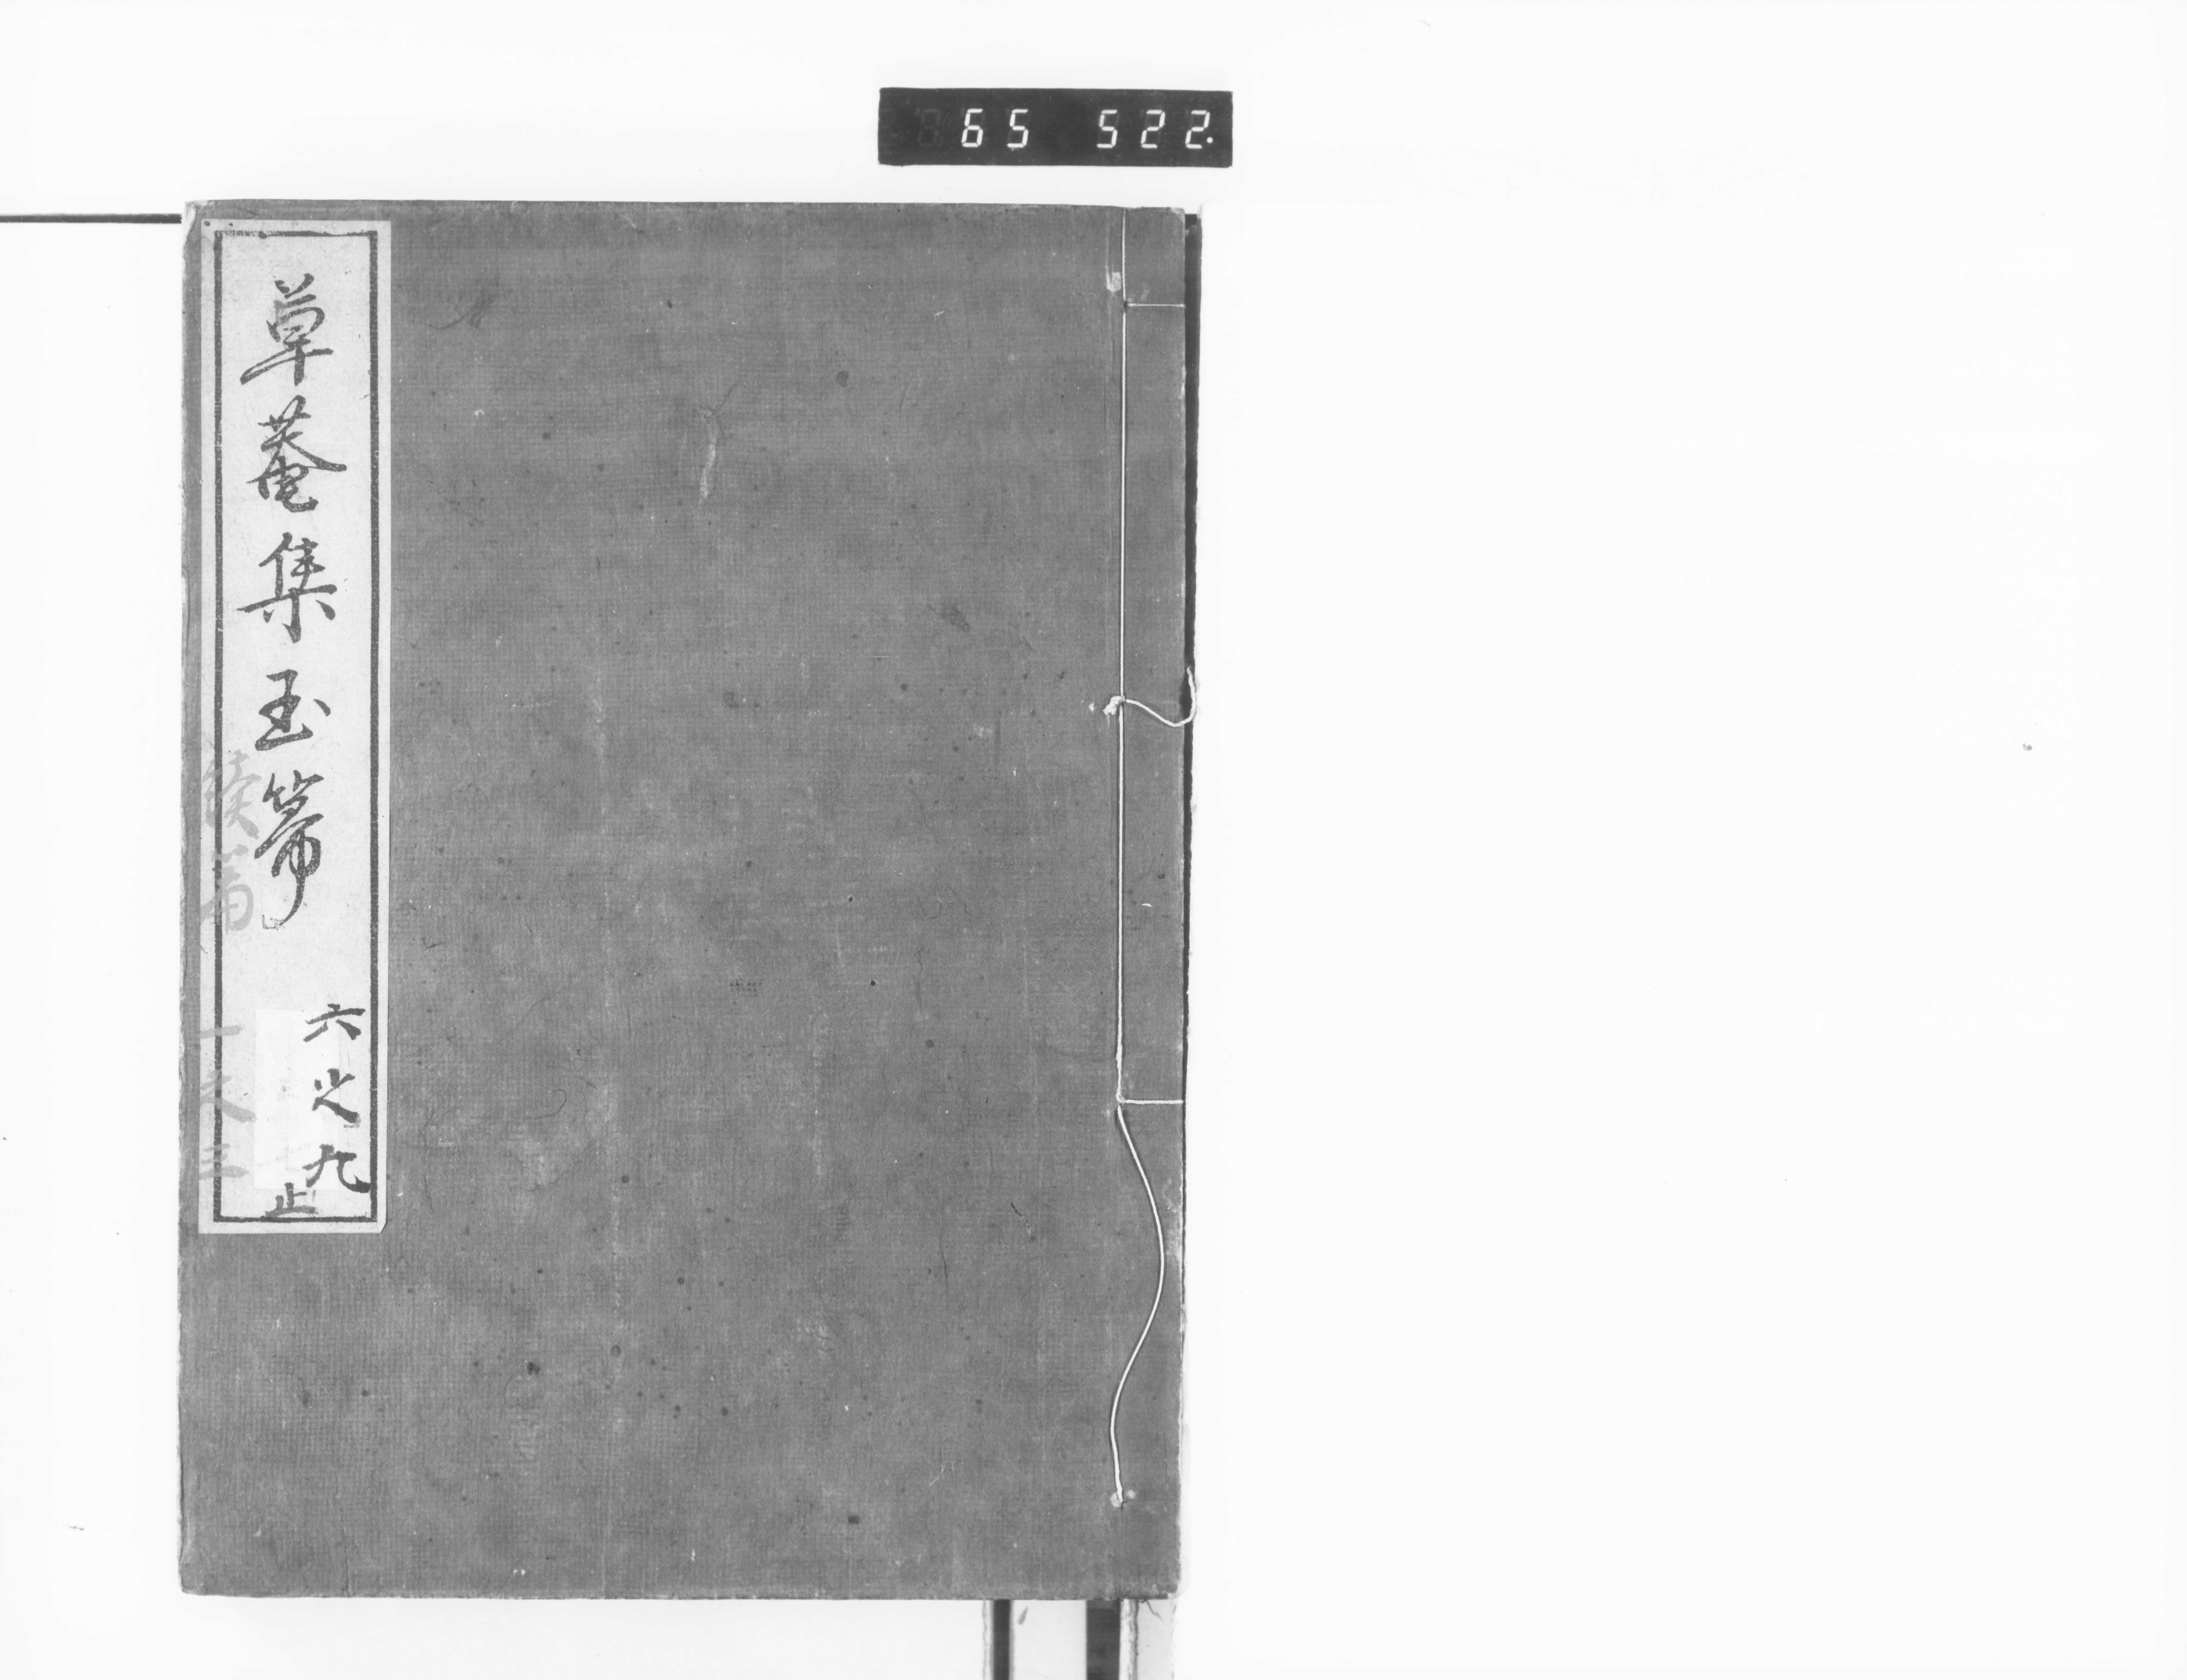 65 522.
草菴集玉箒
六之九
止
続篇
一之三